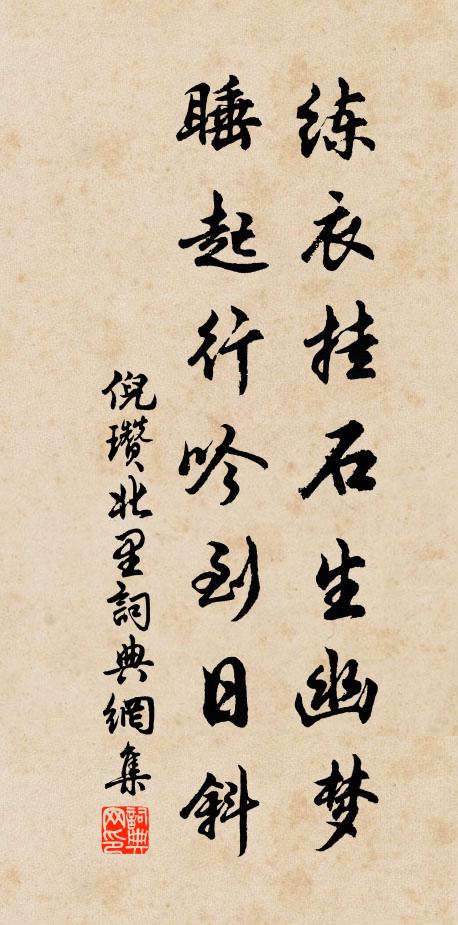 练衣挂石生幽梦
睡起行吟到日斜
倪瓒北里詞典網集
詞典网印